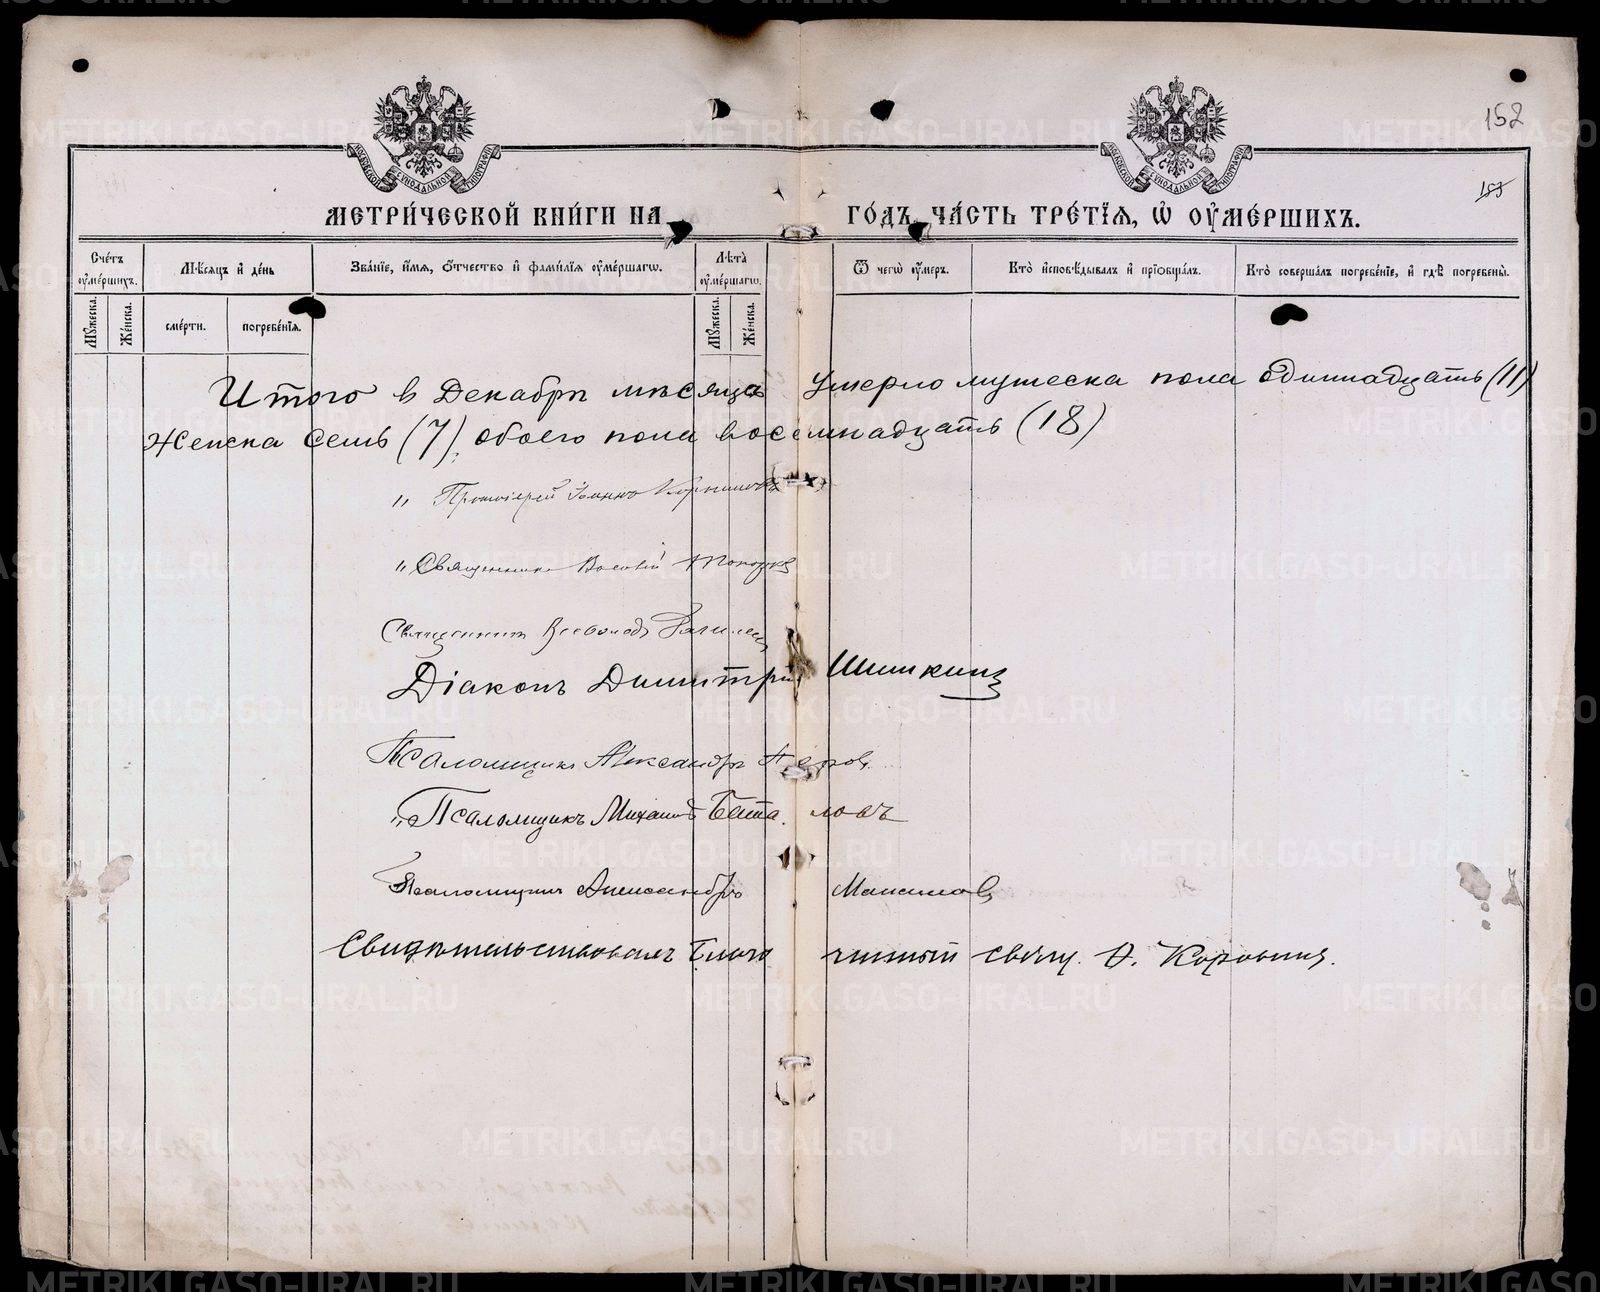 152
153
МОСКОВСКОЙ СѴНОДАЛЬНОЙ ТИПОГРАФІИ
МОСКОВСКОЙ СѴНОДАЛЬНОЙ ТИПОГРАФІИ
МЕТРИ́ЧЕСКОЙ КНИ́ГИ НА ГО́ДЪ, ЧА́СТЬ ТРЕ́ТЇѦ, Ѡ҆ ОУ҆МЕ́РШИХЪ.
Сче́тъ оу҆ме́ршихъ.
Мѣ́сяцъ и҆ де́нь
Зва́нїе, и҆́мѧ, ѻ҆́тчество и҆ фами́лїѧ оу҆ме́ршагѡ.
Лѣ̀та оу҆ме́ршагѡ.
Ѿ чегѡ̀ оу҆́меръ.
Кто̀ и҆сповѣ́дывалъ и҆ прїѡбща́лъ.
Кто̀ соверша́лъ погребе́нїе, и҆ гдѣ̀ погребены̀.
Му́жеска.
Же́нска.
сме́рти.
погребе́нїѧ.
Му́жеска.
Же́нска.
Итого в Декабрѣ мѣсяцѣ умерло мужеска пола одиннадцать (11)
Женска семь (7), обоего пола восемнадцать (18)
" Протоіерей Іоаннъ
" Священникъ
Священникъ Всеволодъ
Діаконъ Димитрій Шишкинъ
Псаломщикъ Александръ
" Псаломщикъ Михаилъ Баталовъ
Псаломщикъ Александръ Максимовъ
Свидѣтельствовалъ Благочинный свящ. А. Коровинъ.
METRIKI.GASO-URAL.RU